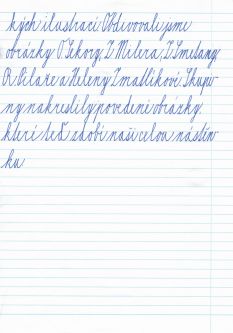 kých ilustrací. Obdivovali jsme
obrázky O. Sekory, Z. Milera, Z. Smetany,
R. Pilaře a Heleny Zmatlíkové. Skupi-
ny nakreslily povedené obrázky,
které teď zdobí naši celou nástěn-
ku